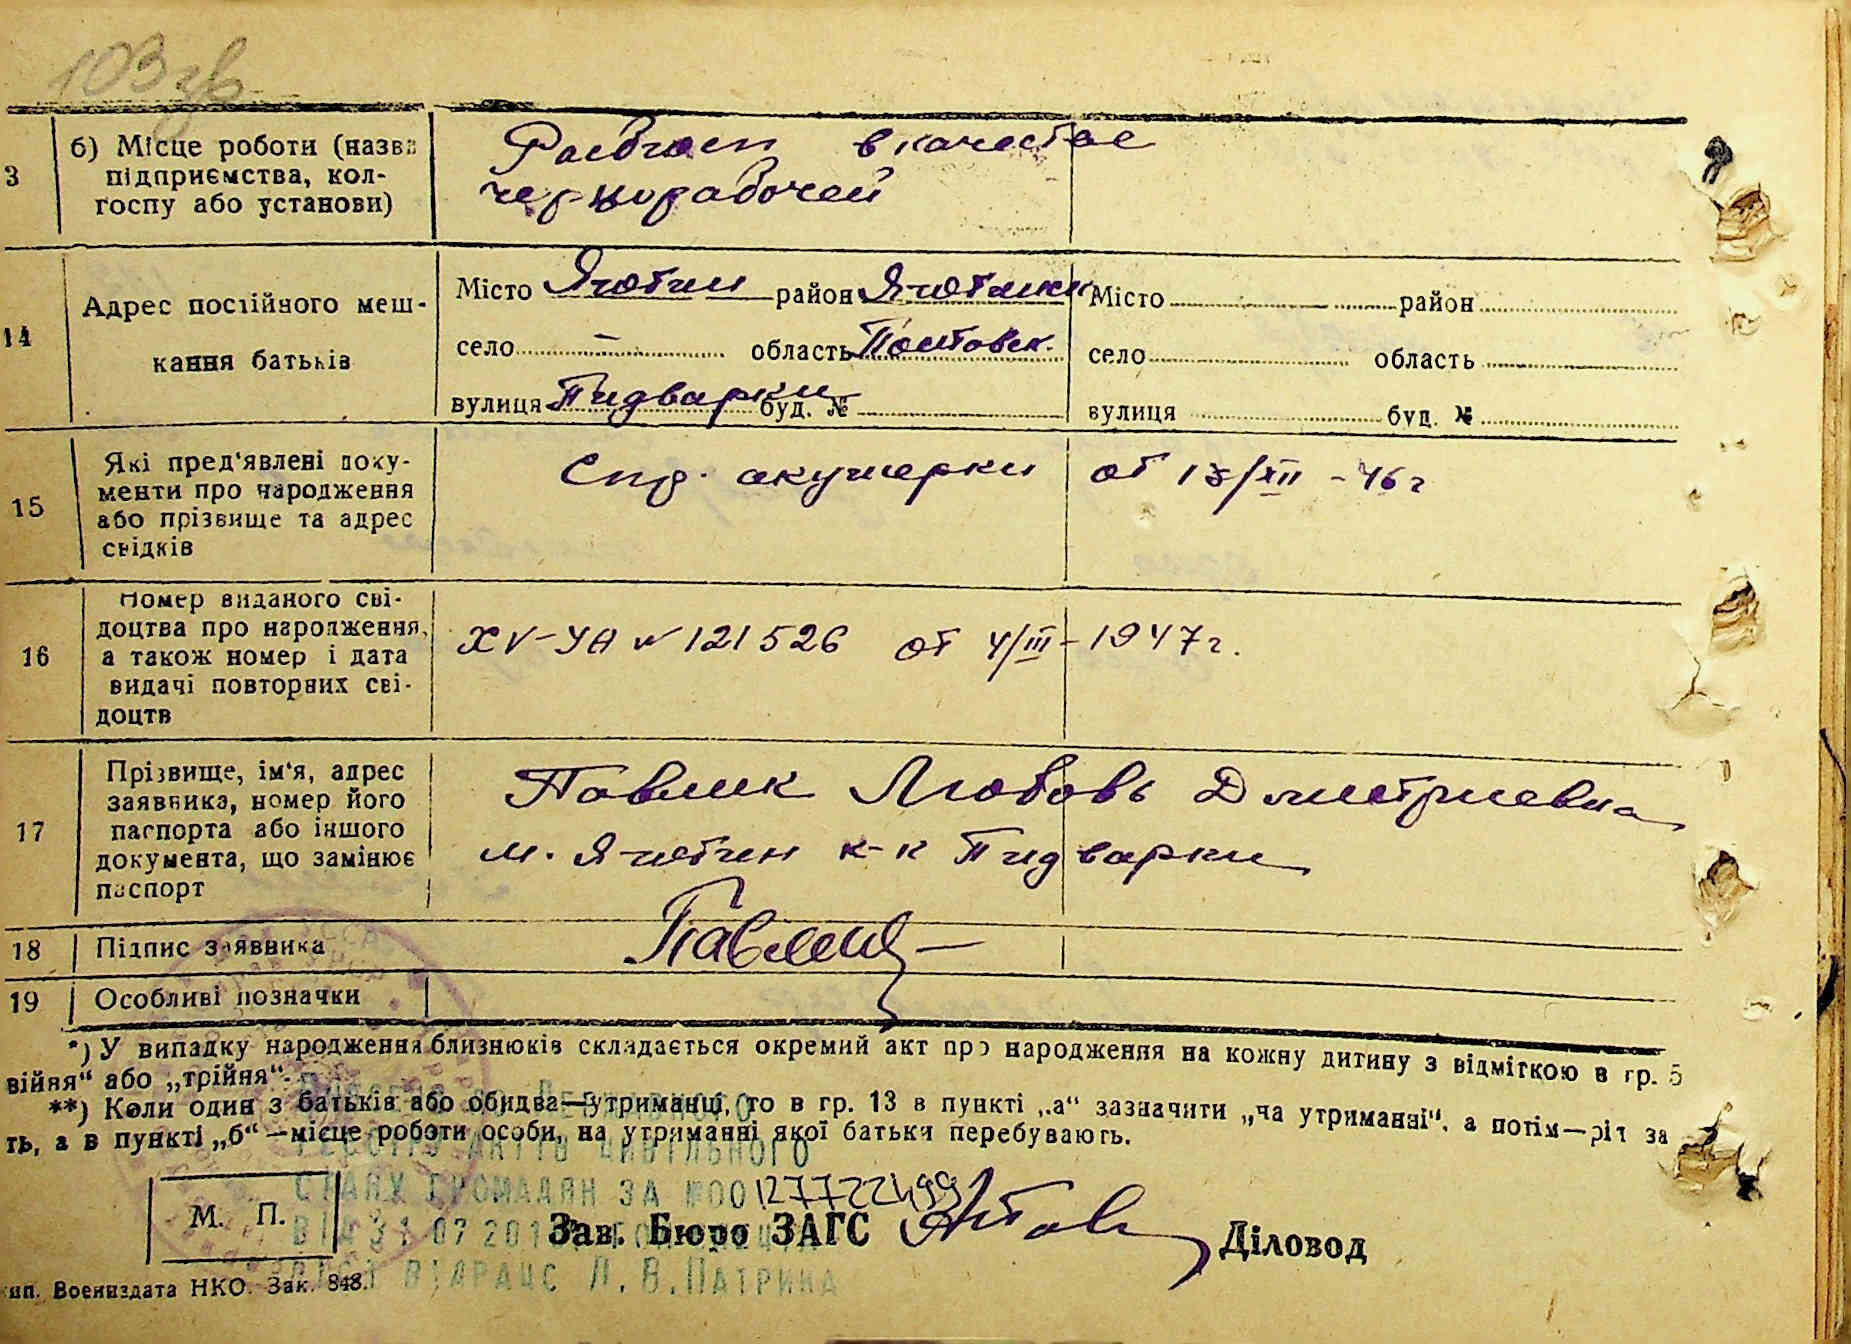 103 зв
3
б) Місце роботи (назва
підприємства, кол-
госпу або установи)
в качестве
чернорабочей
14
Адрес постійного меш-
кання батьків
Місто Яготин район Яготинск
село – область Полтавск.
вулиця Пидварки буд. №
Місто район
село область
вулиця буд. №
15
Які пред'явлені доку-
менти про народження
або прізвище та адрес
свідків
Спр. акушерки от 13/XII - 46 г
16
Номер виданого сві-
доцтва про народження,
а також номер і дата
видачі повторних сві-
доцтв
XV-УА № 121526 от 4/III - 1947 г.
17
Прізвище, ім'я, адрес
заявника, номер його
паспорта або іншого
документа, що замінює
паспорт
Павлик Любовь Дмитриевна
м. Яготин к-к Пидварки
18
Підпис заявника
19
Особливі позначки
*) У випадку народження близнюків складається окремий акт про народження на кожну дитину з відміткою в гр. 5
війня" або „трійня".
**) Коли один з батьків або обидва—утриманці, то в гр. 13 в пункті „а" зазначити „на утриманні", а потім—
ть, а в пункті „б"—місце роботи особи, на утриманні якої батьки перебувають.
АКТІВ ЦИВІЛЬНОГО
СТАНУ ГРОМАДЯН ЗА №00127722499
М. П.
Зав. Бюро ЗАГС
Діловод
ВІДРАЦС Л.В.ПАТРИНА
ип. Воениздата НКО. Зак. 848.